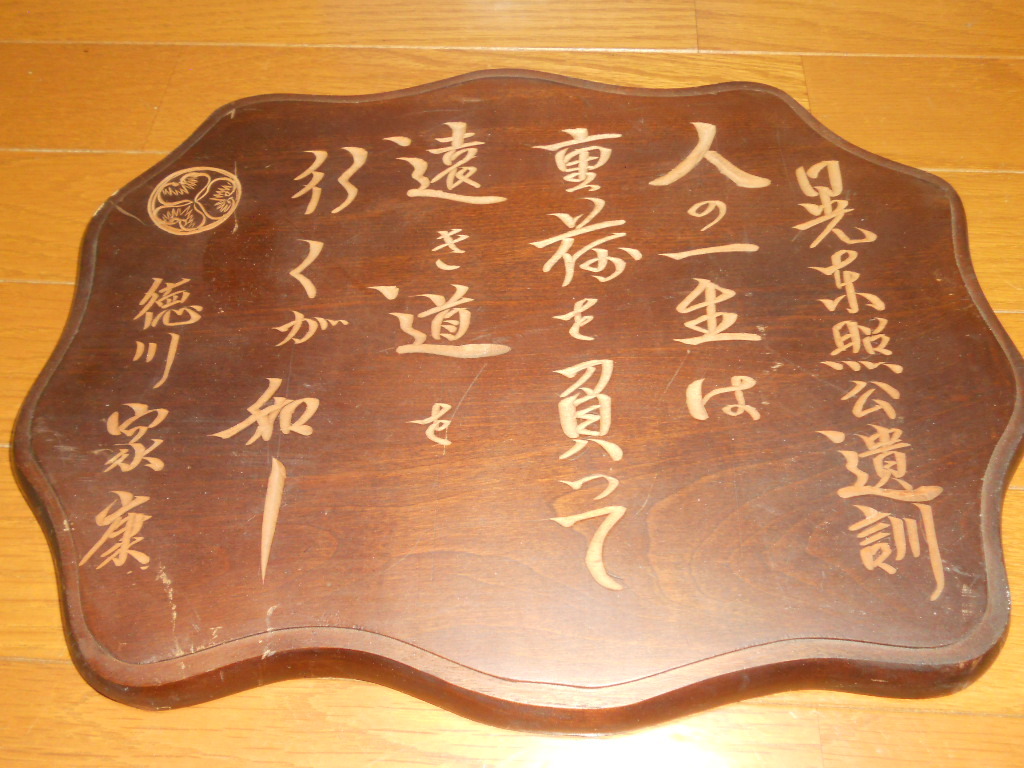 日光東照公遺訓
人の一生は
重荷を負って
遠き道を
行くが如し
徳川家康